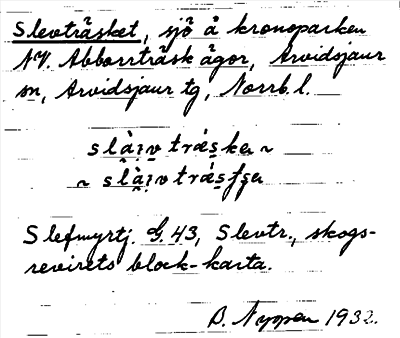 Slevträsket, sjö å kronoparken
NV. Abborrträsk ägor, Arvidsjaur
sn, Arvidsjaur tg, Norrb. l.
slàiv tráska ~
~ slàiv trásfsa
Slefmyrtj. G. 43, Slevtr., skogs-
revirets block-karta.
B. Nyppen 1932.